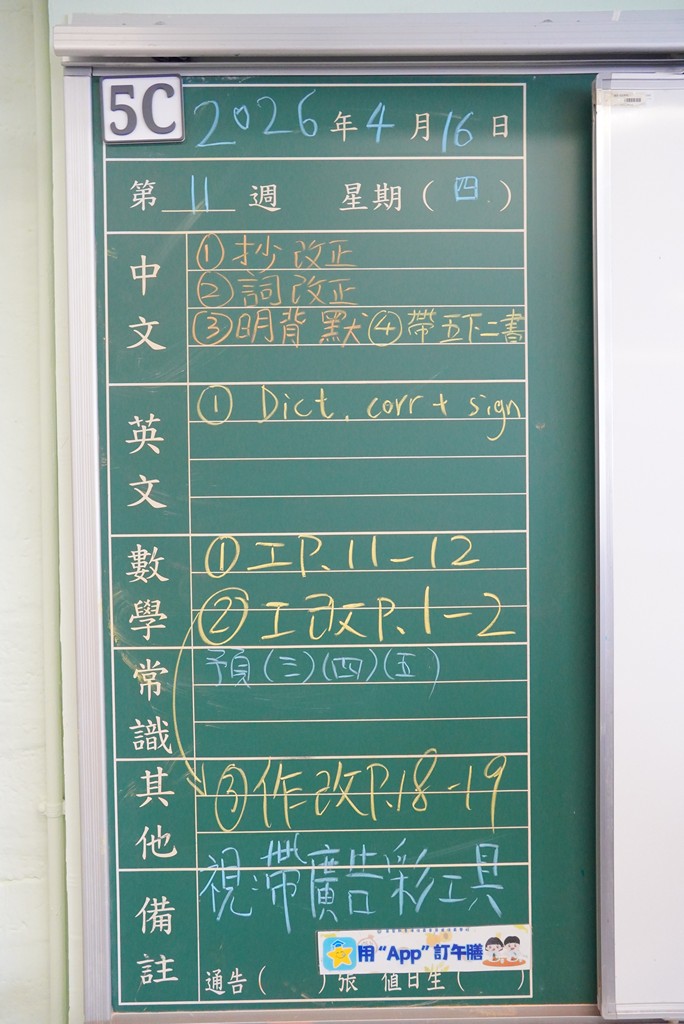 5C
2026年4月16日
第 11 週 星期(四)
中文
①抄改正
②詞改正
③明背默④帶五下二書
英文
① Dict. corr + sign
數學
①工P.11-12
②工改P.1-2
常識
預(三)(四)(五)
其他
③作改P.18-19
視:帶廣告彩工具
備註
用“App”訂午膳
通告( )張 值日生( )